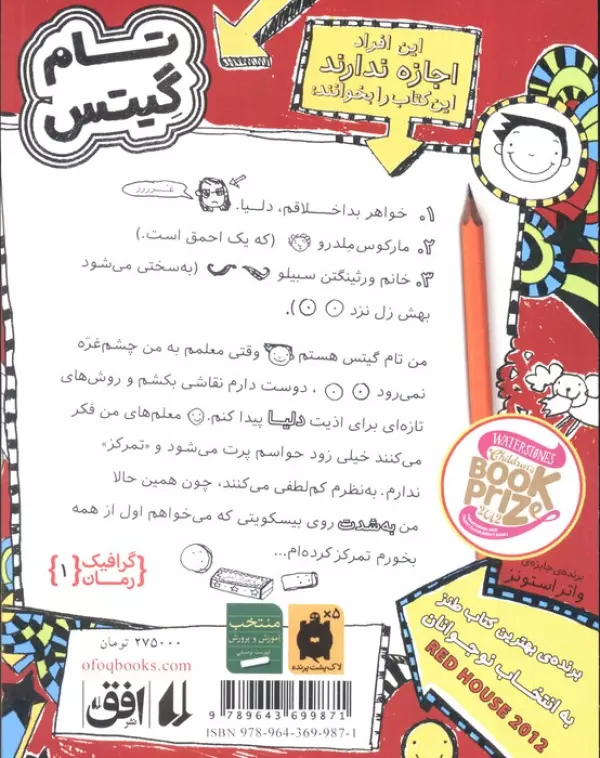 تام
گیتس
این افراد
اجازه ندارند
این کتاب را بخوانند:
۱. خواهر بداخلاقم، دلیا.
غـررررر
۲. مارکوس مِلدرو (که یک احمق است.)
۳. خانم ورثینگتن سبیلو (به‌سختی می‌شود
بهش زل نزد).
من تام گیتس هستم وقتی معلمم به من چشم‌غرّه
نمی‌رود ، دوست دارم نقاشی بکشم و روش‌های
تازه‌ای برای اذیت دلیا پیدا کنم. معلم‌های من فکر
می‌کنند خیلی زود حواسم پرت می‌شود و «تمرکز»
ندارم. به‌نظرم کم‌لطفی می‌کنند، چون همین حالا
من به‌شدت روی بیسکویتی که می‌خواهم اول از همه
بخورم تمرکز کرده‌ام...
گرافیک
رمان
۱
WATERSTONES
Children's
BOOK
PRIZE
2012
برنده‌ی جایزه‌ی
واتراستونز
برنده‌ی بهترین کتاب طنز
به انتخاب نوجوانان
RED HOUSE 2012
۲۷۵۰۰۰ تومان
ofoqbooks.com
نشر افق
منتخب
آموزش و پرورش
فهرست توصیفی
۵×
لاک‌پشت پرنده
9 789643 699871
ISBN 978-964-369-987-1